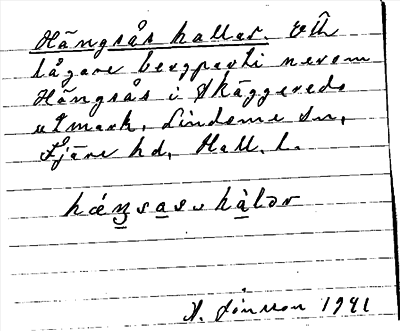 Hängsås hallar. Ett
lågare bergparti nerom
Hängsås i Skäggereds
utmark, Lindome sn,
Fjäre hd, Hall. l.
hǽŋsas⸗hàlər
A. Jönsson 1941